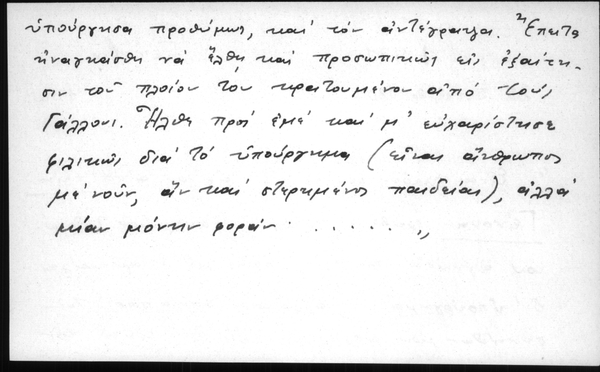 ὑπούργησα προθύμως, καί τόν ἀντέγραψα. Ἔπειτα
ἠναγκάσθη νά ἔλθῃ καί προσωπικῶς εἰς ἐξαίτη-
σιν τοῦ πλοίου του κρατουμένου ἀπό τούς
Γάλλους. Ἦλθε πρός ἐμέ καί μ' εὐχαρίστησε
φιλικῶς διά τό ὑπούργημα (εἶναι ἄνθρωπος
μέ νοῦν, ἄν καί στερημένος παιδείας), ἀλλά
μίαν μόνην φοράν . . . . . . "